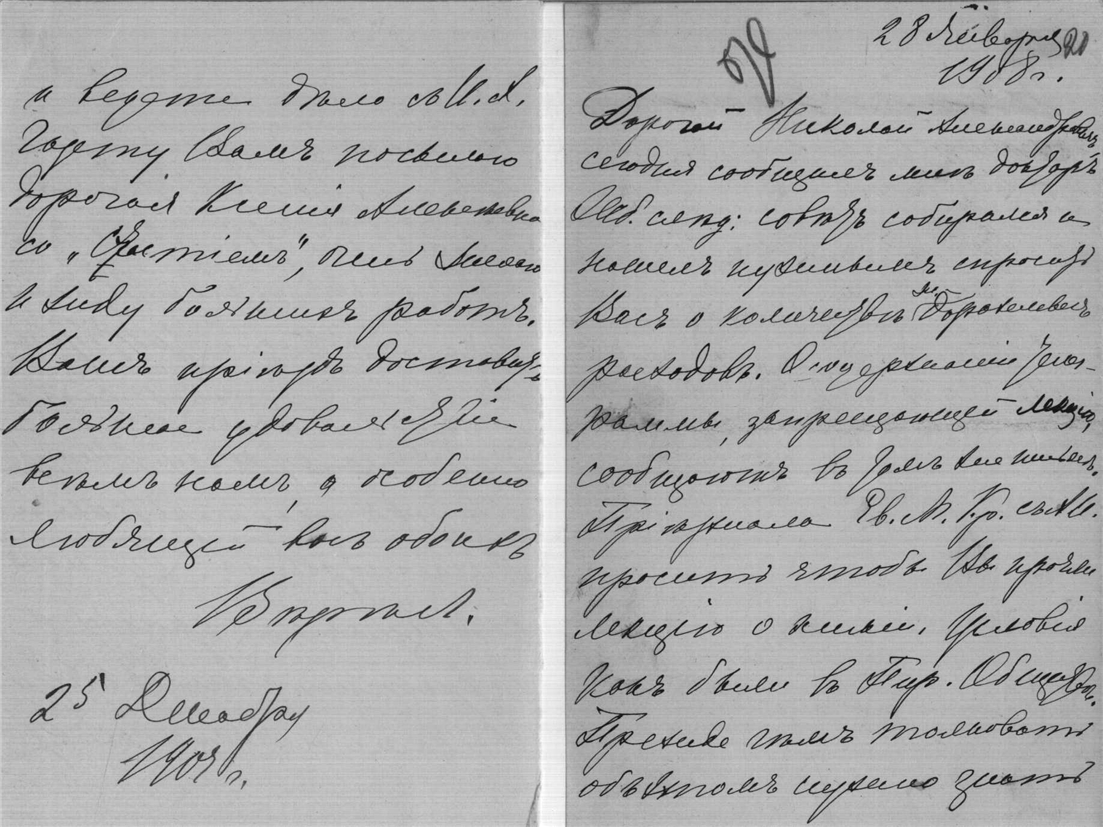 и ведете дѣло съ И. Я.
Газету Вамъ посылаю
Дорогая Ксенія Алексѣевна
со „Счастіемъ“, очень
и жду большихъ работъ.
Вашъ пріѣздъ доставитъ
большое удовольствіе
всѣмъ намъ, а особенно
любящей васъ обоихъ
25 Декабря
1907 г.
28 Января
1908 г.
Дорогой Николай Александровичъ
сегодня сообщилъ мнѣ докторъ
Общ. совѣтъ собирался и
нашелъ нужнымъ спросить
Васъ о количествѣ
расходовъ. О содержаніи теле-
граммы, запрещающей лекцію,
сообщаютъ въ
Пріѣзжала Ев. М. Кр.
проситъ чтобы Вы прочли
лекцію о условія
какъ были въ Пир. Обществ.
Прежде чѣмъ толковать
объ этомъ нужно знать